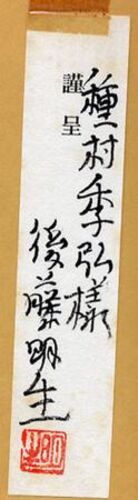 謹呈
種村季弘様
後藤明生
明生